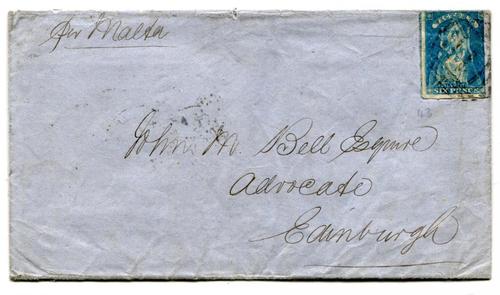 Per Malta
VICTORIA
SIX PENCE
43
John M. Bell Esquire
Advocate
Edinburgh